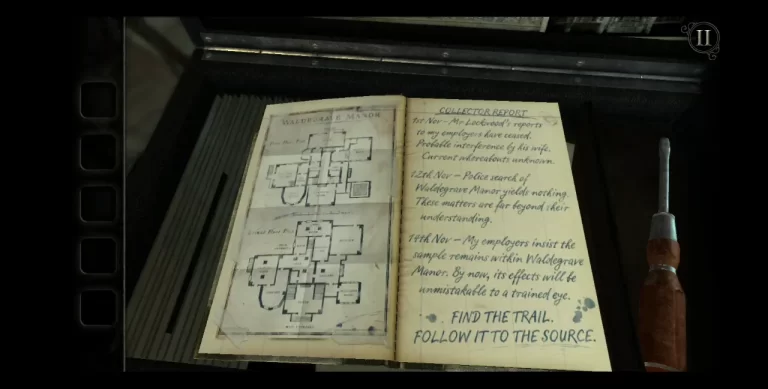 II
WALDEGRAVE MANOR
COLLECTOR REPORT
1st Nov – Mr Lockwood's reports
to my employers have ceased.
Probable interference by his wife.
Current whereabouts unknown.
12th Nov – Police search of
Waldegrave Manor yields nothing.
These matters are far beyond their
understanding.
14th Nov – My employers insist the
sample remains within Waldegrave
Manor. By now, its effects will be
unmistakable to a trained eye.
FIND THE TRAIL.
FOLLOW IT TO THE SOURCE.